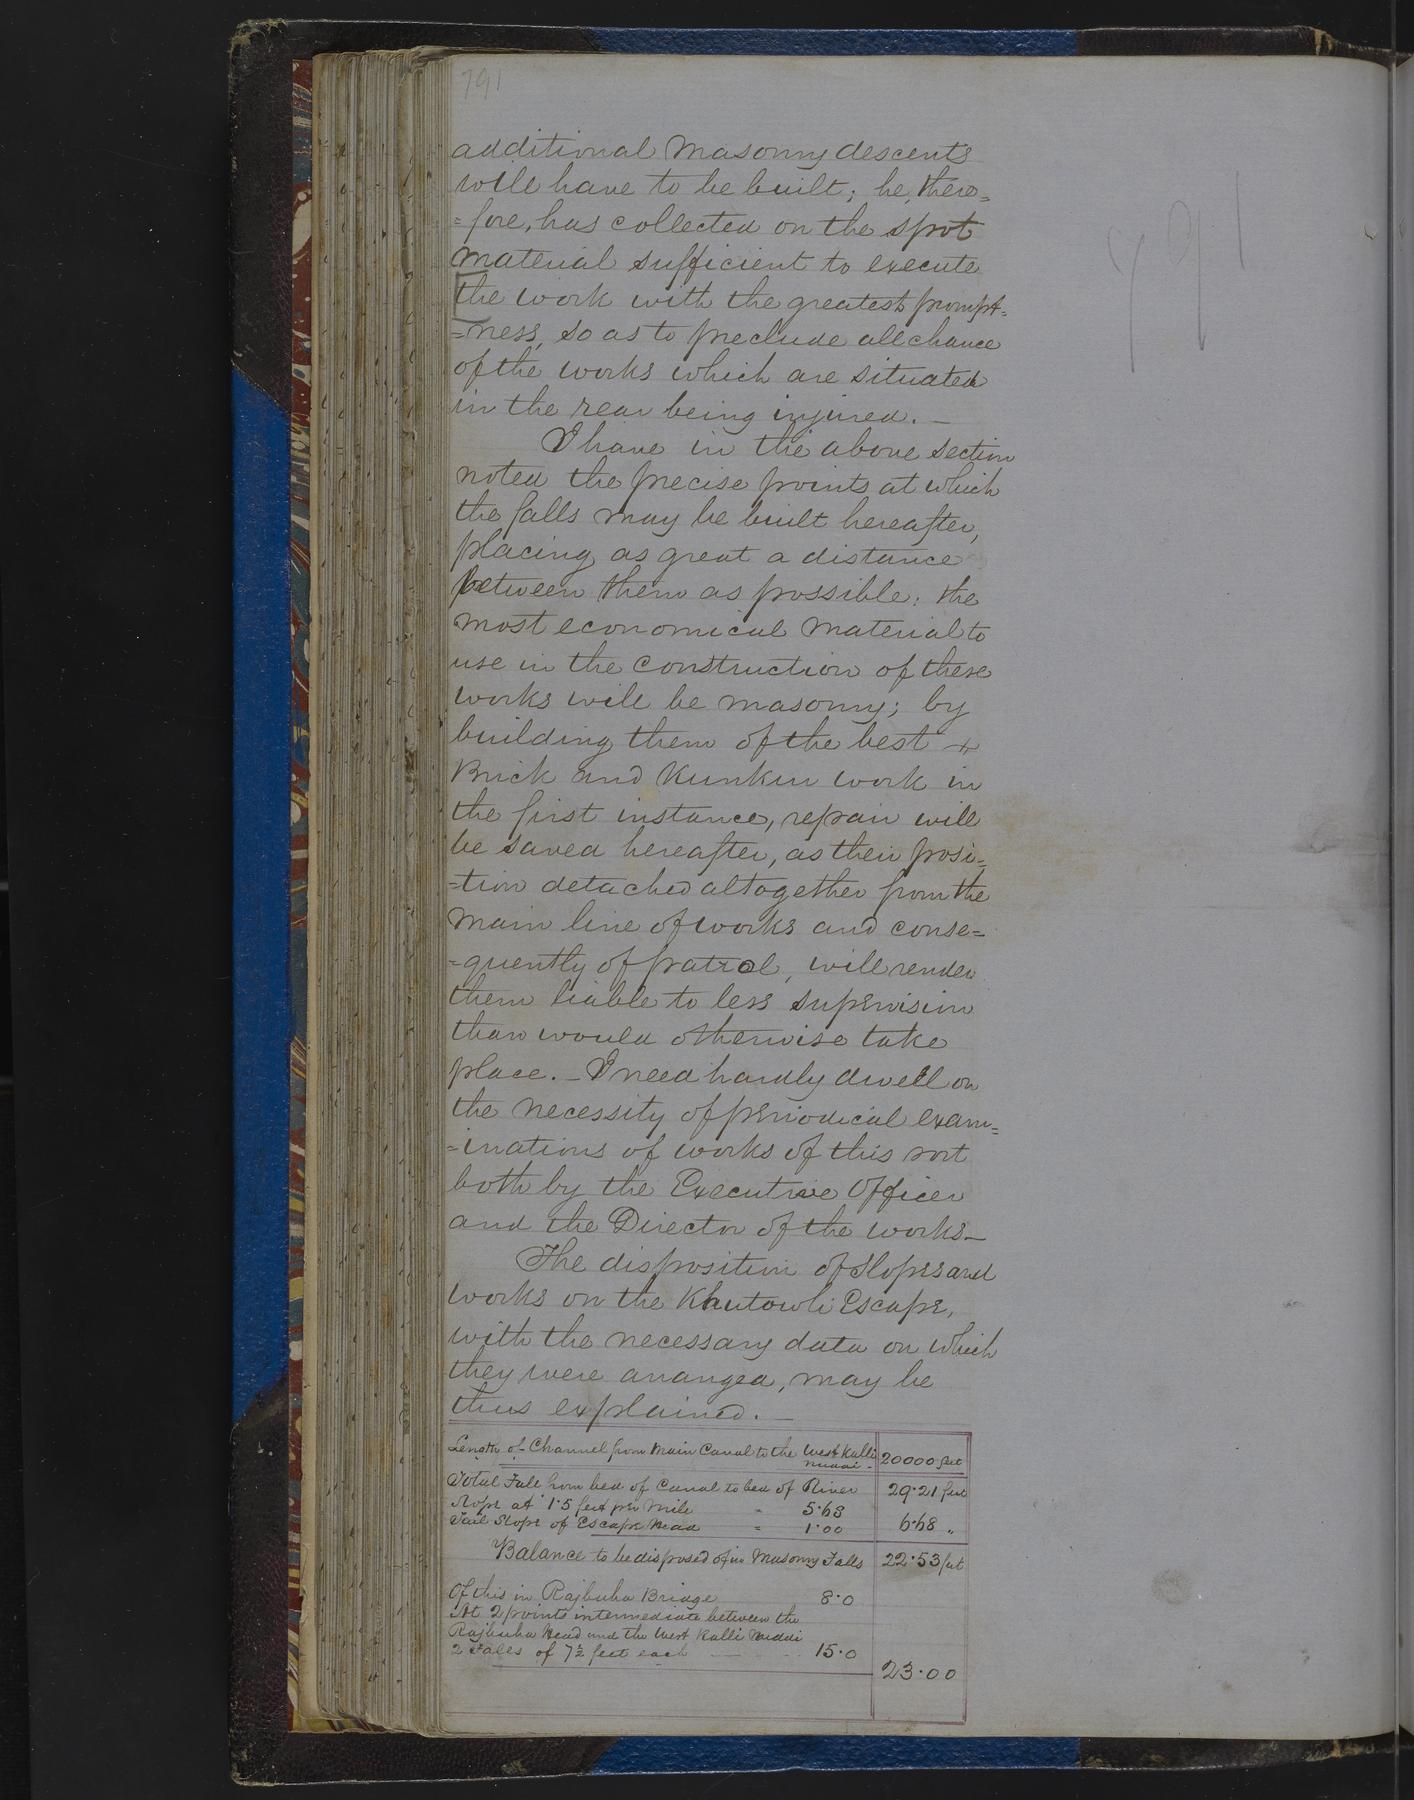 791
791
additional masonry descents
will have to be built; he, there=
=fore, has collected on the spot
material sufficient to execute
the work with the greatest prompt=
=ness, so as to preclude all chance
of the works which are situated
in the rear being injured. —
I have in the above section
noted the precise points at which
the falls may be built hereafter,
placing as great a distance
between them as possible: the
most economical material to
use in the construction of these
works will be masonry; by
building them of the best
Brick and Kunkur work in
the first instance, repair will
be saved hereafter, as their posi=
=tion detached altogether from the
main line of works and conse=
=quently of patrol, will render
them liable to less supervision
than would otherwise take
place. — I need hardly dwell on
the necessity of periodical exam=
=inations of works of this sort
both by the Executive Officer
and the Director of the works —
The disposition of Slopes and
works on the Khutowli Escape,
with the necessary data on which
they were arranged, may be
thus explained. —
Length of Channel from Main Canal to the West Kalli Nuddi - 20000 feet
Total Fall from bed of Canal to bed of River 29.21 feet
Slope at 1.5 feet per Mile " 5.68
Tail Slope of Escape Head " 1.00 6.68 "
Balance to be disposed of in Masonry Falls 22.53 feet
Of this in Rajbuha Bridge 8.0
At 2 points intermediate between the
Rajbuha Head and the West Kalli Nuddi
2 Falls of 7½ feet each — 15.0
23.00